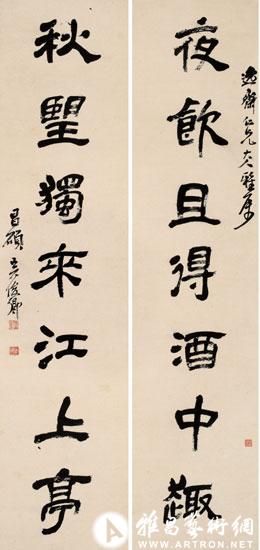 逸齋仁兄大人雅屬
夜飲且得酒中趣
秋朢獨來江上亭
昌碩吳俊卿
雅昌藝術網
WWW.ARTRON.NET